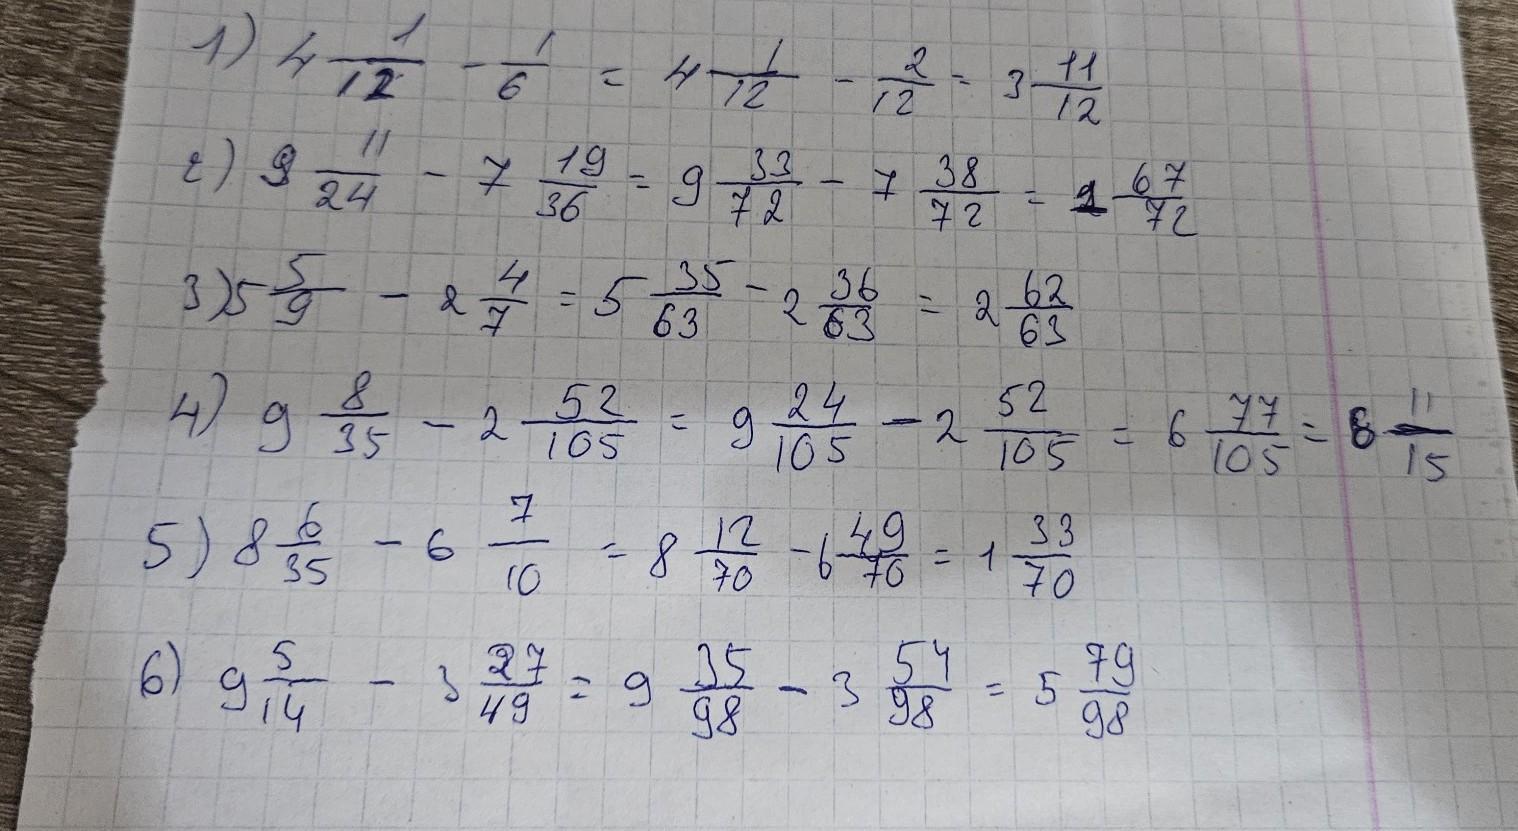 1) 4 1/12 - 1/6 = 4 1/12 - 2/12 = 3 11/12
2) 9 11/24 - 7 19/36 = 9 33/72 - 7 38/72 = 1 67/72
3) 5 5/9 - 2 4/7 = 5 35/63 - 2 36/63 = 2 62/63
4) 9 8/35 - 2 52/105 = 9 24/105 - 2 52/105 = 6 77/105 = 6 11/15
5) 8 6/35 - 6 7/10 = 8 12/70 - 6 49/70 = 1 33/70
6) 9 5/14 - 3 27/49 = 9 35/98 - 3 54/98 = 5 79/98